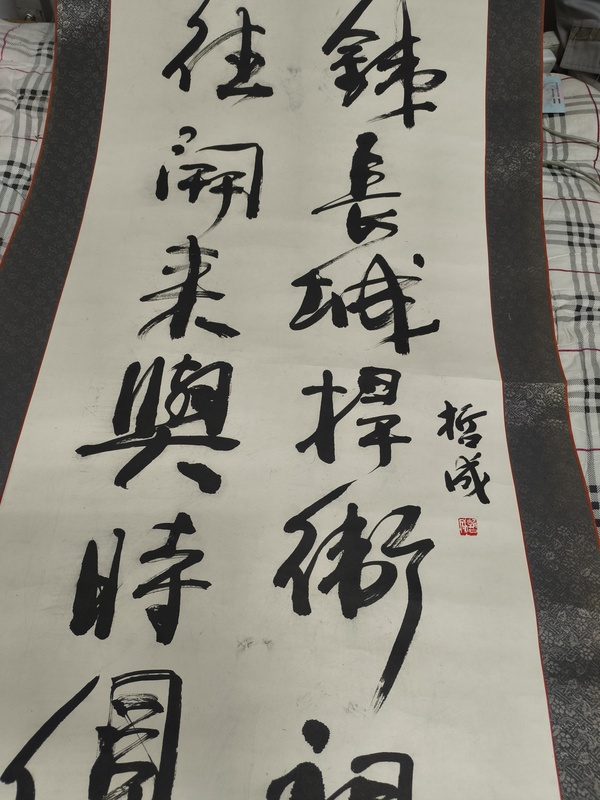 哲成
銕長城捍衛祖
往開来與時俱